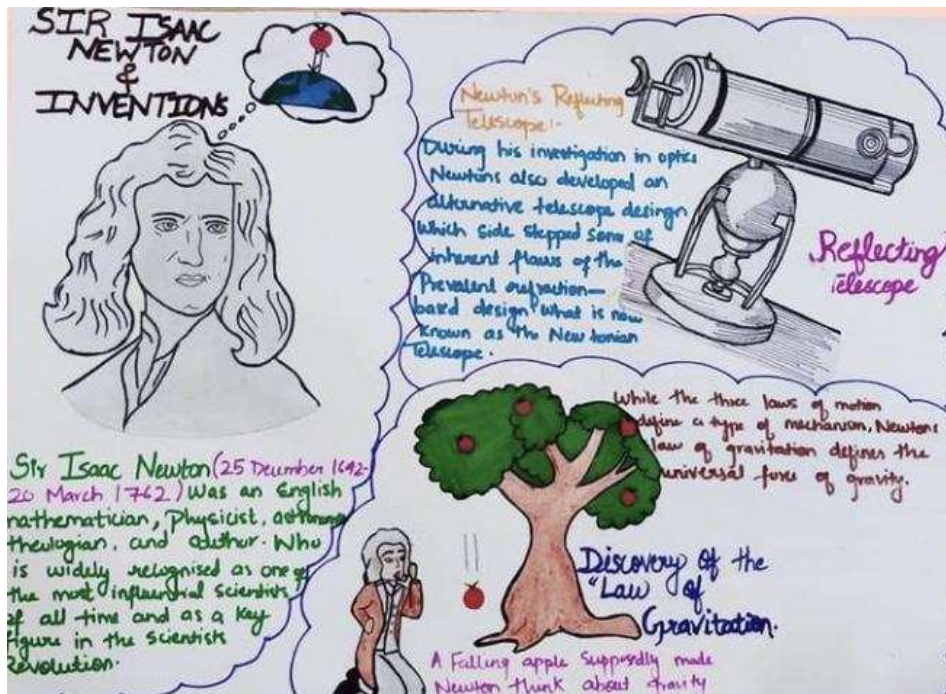 SIR ISAAC
NEWTON
&
INVENTIONS
Sir Isaac Newton (25 December 1642-
20 March 1762) Was an English
mathematician, Physicist, astronomer
theologian, and author. Who
is widely recognised as one of
the most influential scientists
of all time and as a key
figure in the Scientists
Revolution.
Newton's Reflecting
Telescope:-
During his investigation in optics
Newtons also developed an
alternative telescope desingn
Which side stepped some of
inherent flaws of the
Prevalent refraction-
based design What is now
known as the Newtonian
Telescope.
Reflecting
Telescope
While the three laws of motion
define a type of mechanism, Newtons
law of gravitation defines the
universal force of gravity.
Discovery of the
"Law of
Gravitation.
A Falling apple Supposedly made
Newton think about Gravity